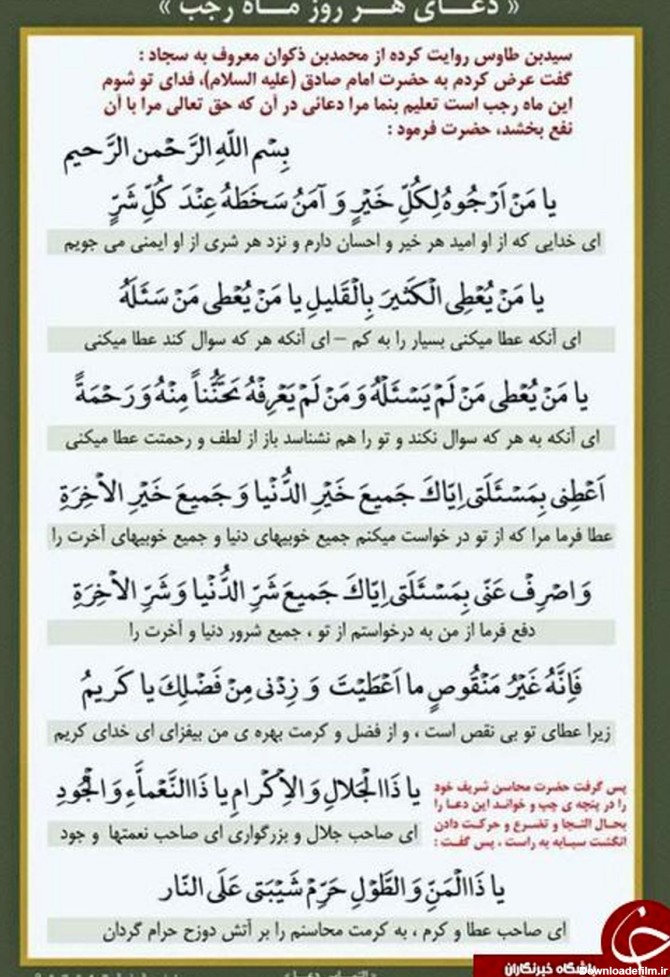 « دعـــای هــر روز مــاه رجب »
سیدبن طاوس روایت کرده از محمدبن ذکوان معروف به سجاد :
گفت عرض کردم به حضرت امام صادق (علیه السلام)، فدای تو شوم
این ماه رجب است تعلیم بنما مرا دعائی در آن که حق تعالی مرا با آن
نفع بخشد، حضرت فرمود :
بِسْمِ اللّهِ الرَّحْمنِ الرَّحیمِ
یا مَنْ اَرْجُوهُ لِکُلِّ خَیْرٍ وَ آمَنُ سَخَطَهُ عِنْدَ کُلِّ شَرٍّ
ای خدایی که از او امید هر خیر و احسان دارم و نزد هر شری از او ایمنی می جویم
یا مَنْ یُعْطِی الْکَثیرَ بِالْقَلیلِ یا مَنْ یُعْطی مَنْ سَئَلَهُ
ای آنکه عطا میکنی بسیار را به کم – ای آنکه هر که سوال کند عطا میکنی
یا مَنْ یُعْطی مَنْ لَمْ یَسْئَلْهُ وَ مَنْ لَمْ یَعْرِفْهُ تَحَنُّناً مِنْهُ وَ رَحْمَةً
ای آنکه به هر که سوال نکند و تو را هم نشناسد باز از لطف و رحمتت عطا میکنی
اَعْطِنی بِمَسْئَلَتی اِیّاکَ جَمیعَ خَیْرِ الدُّنْیا وَ جَمیعَ خَیْرِ الاْخِرَةِ
عطا فرما مرا که از تو در خواست میکنم جمیع خوبیهای دنیا و جمیع خوبیهای آخرت را
وَ اصْرِفْ عَنّی بِمَسْئَلَتی اِیّاکَ جَمیعَ شَرِّ الدُّنْیا وَ شَرِّ الاْخِرَةِ
دفع فرما از من به درخواستم از تو ، جمیع شرور دنیا و آخرت را
فَاِنَّهُ غَیْرُ مَنْقُوصٍ ما اَعْطَیْتَ وَ زِدْنی مِنْ فَضْلِکَ یا کَریمُ
زیرا عطای تو بی نقص است ، و از فضل و کرمت بهره ی من بیفزای ای خدای کریم
پس گرفت حضرت محاسن شریف خود
را در پنجه ی چپ و خوانـد این دعـا را
بحـال التـجا و تضـرع و حرکـت دادن
انگشت سبـابه به راسـت ، پس گفـت :
یا ذَاالْجَلالِ وَ الاِکْرامِ یا ذَاالنَّعْماَّءِ وَ الْجُودِ
ای صاحب جلال و بزرگواری ای صاحب نعمتها و جود
یا ذَاالْمَنِّ وَ الطَّوْلِ حَرِّمْ شَیْبَتی عَلَی النّارِ
ای صاحب عطا و کرم ، به کرمت محاسنم را بر آتش دوزخ حرام گردان
باشگاه خبرنگاران
Downloadefilm.ir